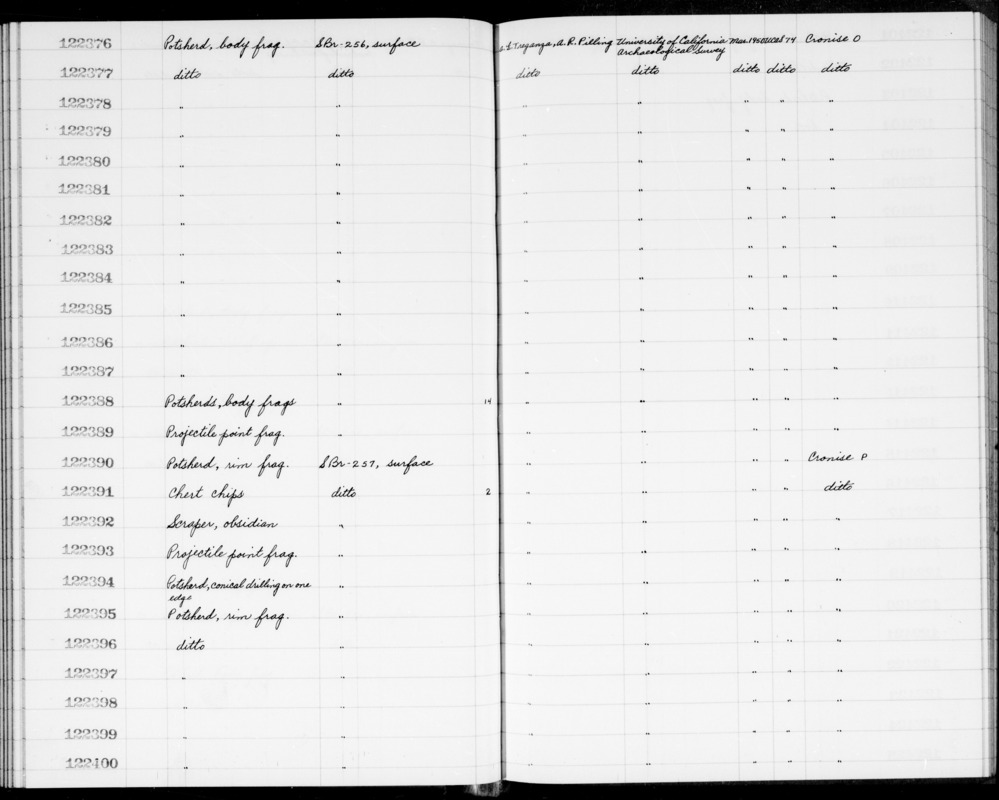 122376 Potsherd, body frag. SBr-256, surface Treganza, A. R. Pilling University of California Archaeological Survey 74 Cronise O
122377 ditto ditto ditto ditto ditto ditto ditto
122378 " " " " " " "
122379 " " " " " " "
122380 " " " " " " "
122381 " " " " " " "
122382 " " " " " " "
122383 " " " " " " "
122384 " " " " " " "
122385 " " " " " " "
122386 " " " " " " "
122387 " " " " " " "
122388 Potsherds, body frags " 14 " " " " "
122389 Projectile point frag. " " " " " "
122390 Potsherd, rim frag. SBr-257, surface " " " " Cronise P
122391 Chert chips ditto 2 " " " " ditto
122392 Scraper, obsidian " " " " " "
122393 Projectile point frag. " " " " " "
122394 Potsherd, conical drilling on one
edge " " " " " "
122395 Potsherd, rim frag. " " " " " "
122396 ditto " " " " " "
122397 " " " " " " "
122398 " " " " " " "
122399 " " " " " " "
122400 " " " " " " "